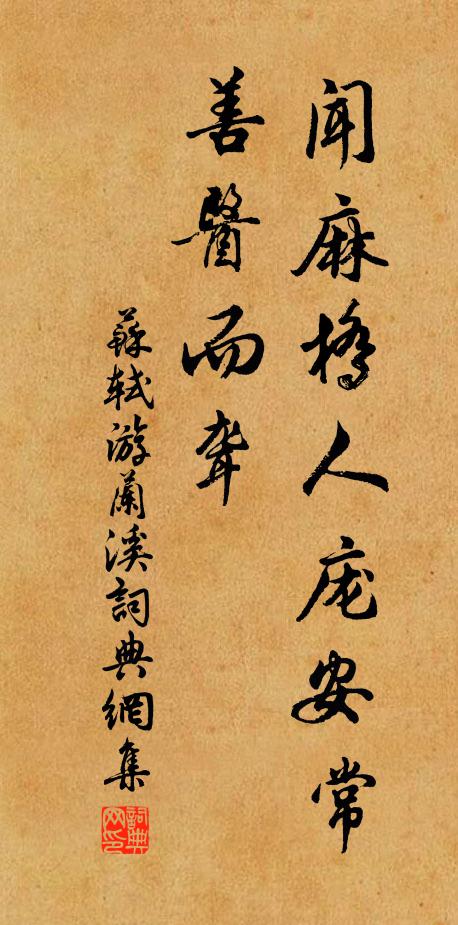 闻麻橋人庞安常
善醫而聋
蘇軾游蘭溪詞典網集
詞典网印